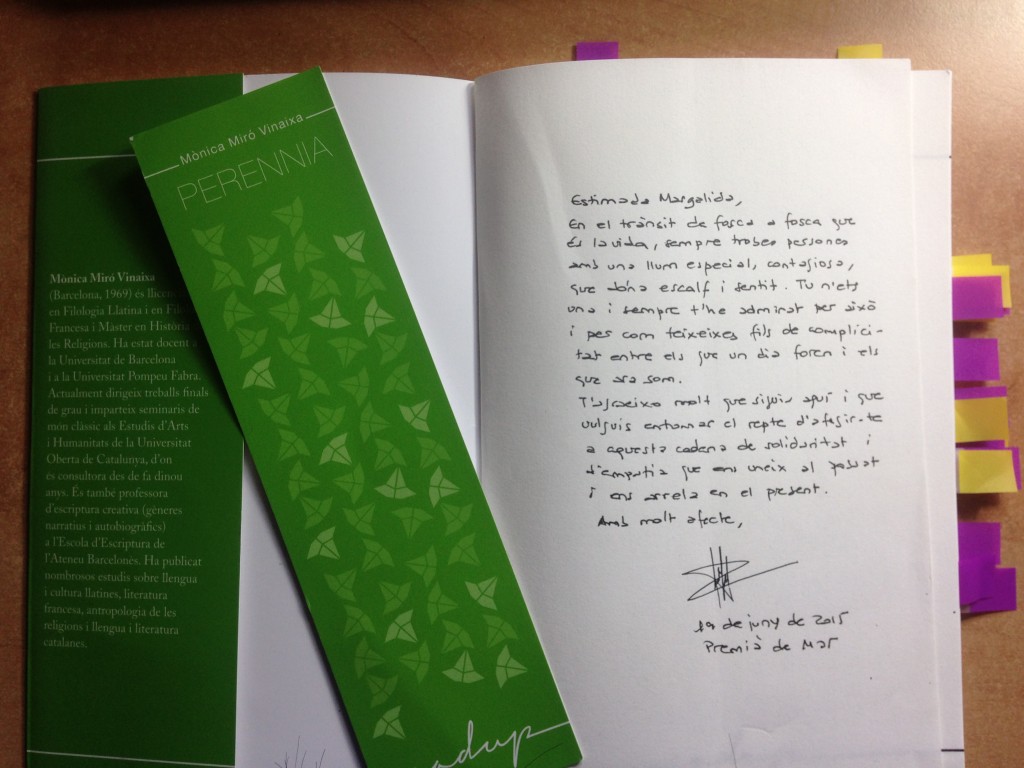 Mònica Miró Vinaixa
PERENNIA
Mònica Miró Vinaixa
(Barcelona, 1969) és
en Filologia Llatina i en
Francesa i Màster en
les Religions. Ha estat docent a
la Universitat de Barcelona
i a la Universitat Pompeu Fabra.
Actualment dirigeix treballs finals
de grau i imparteix seminaris de
món clàssic als Estudis d'Arts
i Humanitats de la Universitat
Oberta de Catalunya, d'on
és consultora des de fa dinou
anys. És també professora
d'escriptura creativa (gèneres
narratius i autobiogràfics)
a l'Escola d'Escriptura de
l'Ateneu Barcelonès. Ha publicat
nombrosos estudis sobre llengua
i cultura llatines, literatura
francesa, antropologia de les
religions i llengua i literatura
catalanes.
adup
Estimada Margalida,
En el trànsit de fosca a fosca que
és la vida, sempre trobes persones
amb una llum especial, contagiosa,
que dóna escalf i sentit. Tu n'ets
una i sempre t'he admirat per això
i per com teixeixes fils de complici-
tat entre els que un dia foren i els
que ara som.
T'agraeixo molt que siguis aquí i que
vulguis entomar el repte d'afegir-te
a aquesta cadena de solidaritat i
d'empatia que ens uneix al passat
i ens arrela en el present.
Amb molt afecte,
19 de juny de 2015
Premià de Mar